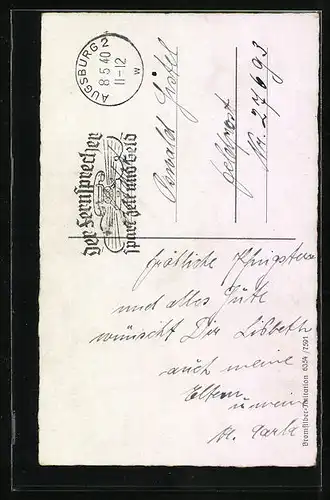 AUGSBURG 2
8.5.40
11-12
w
Der Fernsprecher
spart Zeit und Geld
Oswald
Feldpost
Nr. 27693
fröhliche Pfingsten
und alles Gute
wünscht Dir Lisbeth
auch meine
Eltern
u. meine
Bromsilber-Imitation 6354/7591